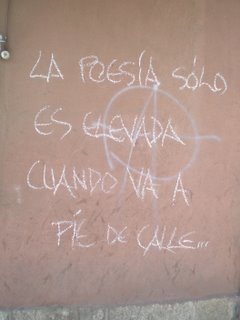 LA POESÍA SÓLO
ES ELEVADA
CUANDO VA A
PIE DE CALLE...